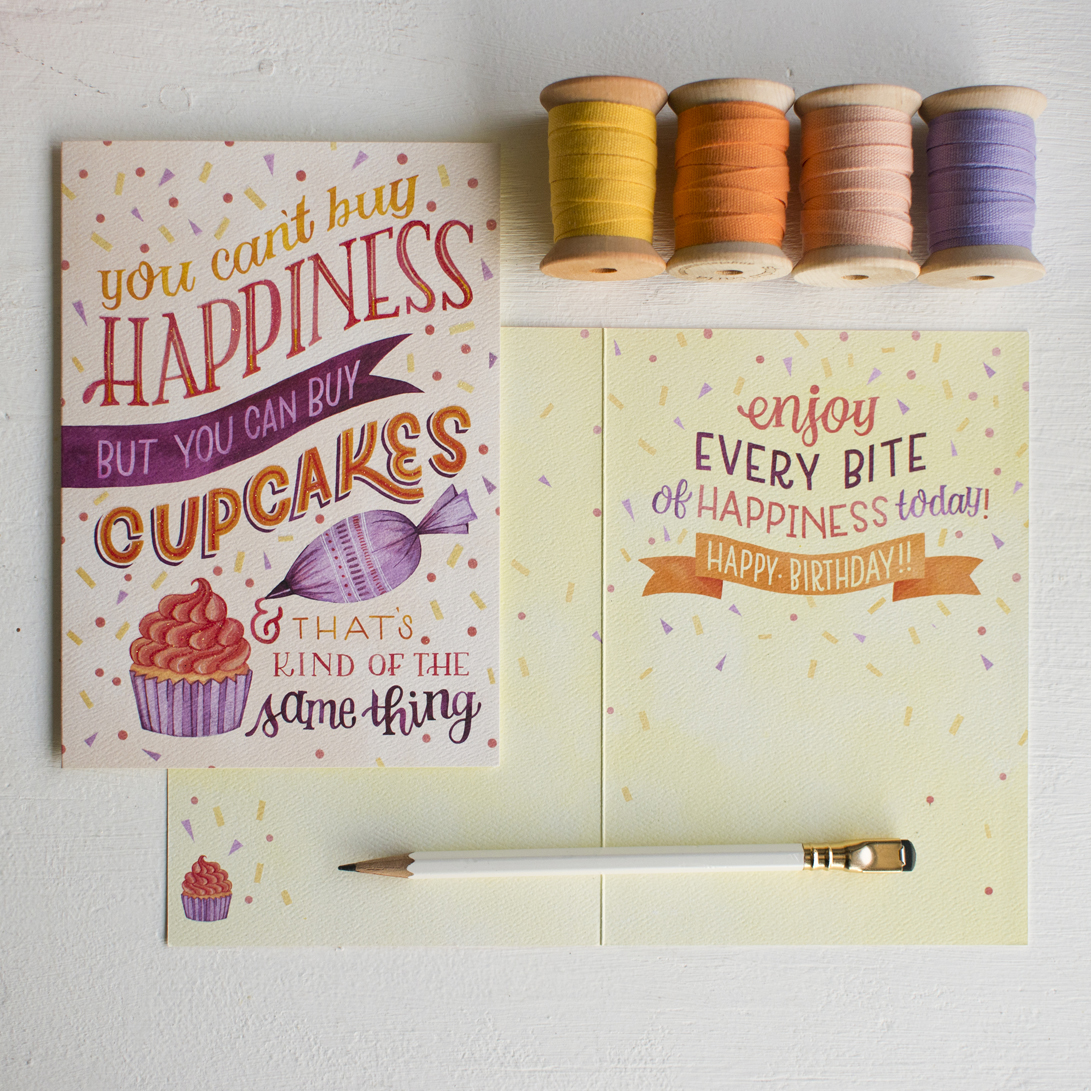 you can't buy
HAPPINESS
BUT YOU CAN BUY
CUPCAKES
& THAT'S
KIND OF THE
same thing
enjoy
EVERY BITE
of HAPPINESS today!
HAPPY·BIRTHDAY!!